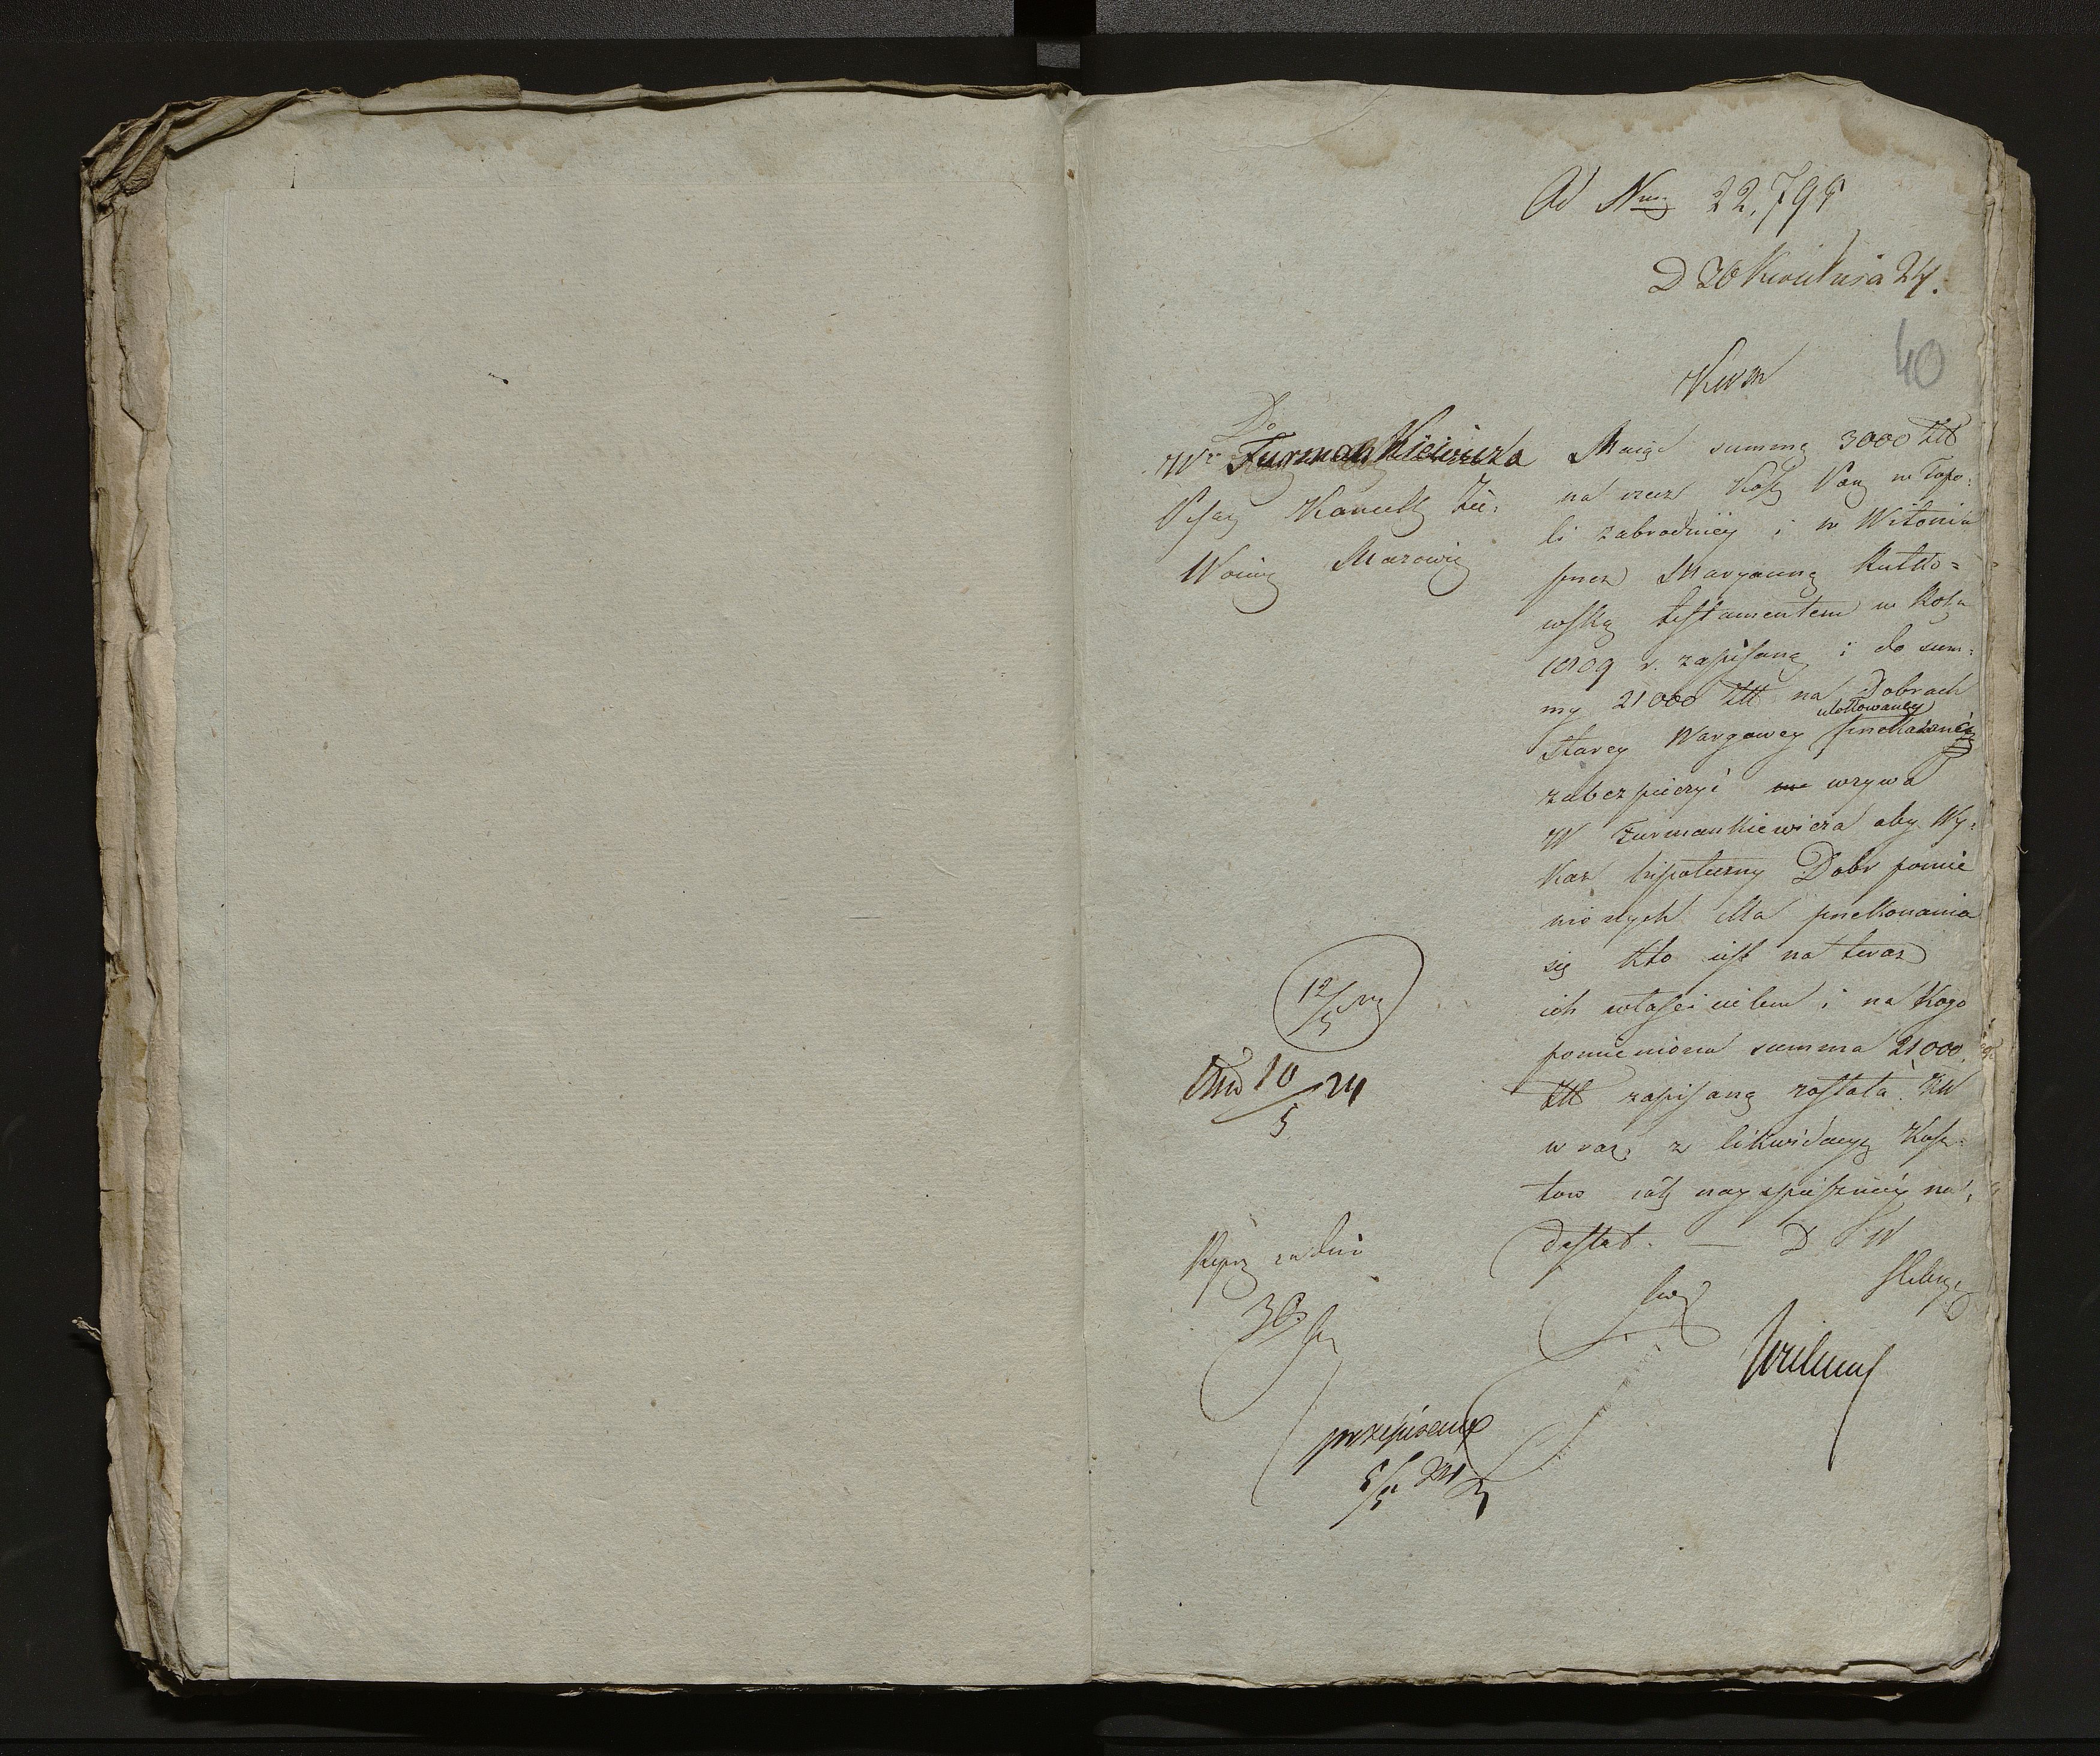 Ad Num 22,795
D 20 Kwietnia 24.
40
KWM
Do
Wo Furmankiewicza
Pisarz Kancell Zie:
Woiew Mazowiec
Maiąc summę 3000 Złł
na rzecz Kość Par w Topo:
li zabrodniey i w Witonii
przez Maryannę Rutko=
wską testamentem w Roku
1809 r. zapisaną i do sum:
my 21000 Złł na Dobrach
Starey Wargawey
ulokowaney
zabezpieczyć wzywa
W Furmankiewicza aby Wy:
kaz hipoteczny Dobr pomie
nionych dla przekonania
się kto iest na teraz
ich właścicielem i na kogo
pomieniona summa 21000
Złł zapisaną została KW
wraz z likwidacyą kosz
tow iak nayspieszniey na:
desłał. — D W
12/5
10/5 24
Repr za dni
30
przepisano
5/5 24